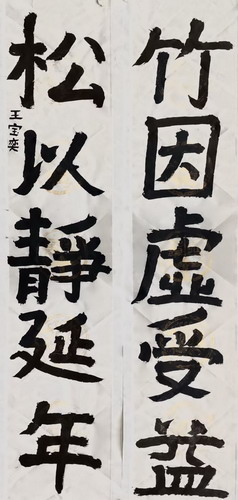 竹因虛受益
松以靜延年
王室奕